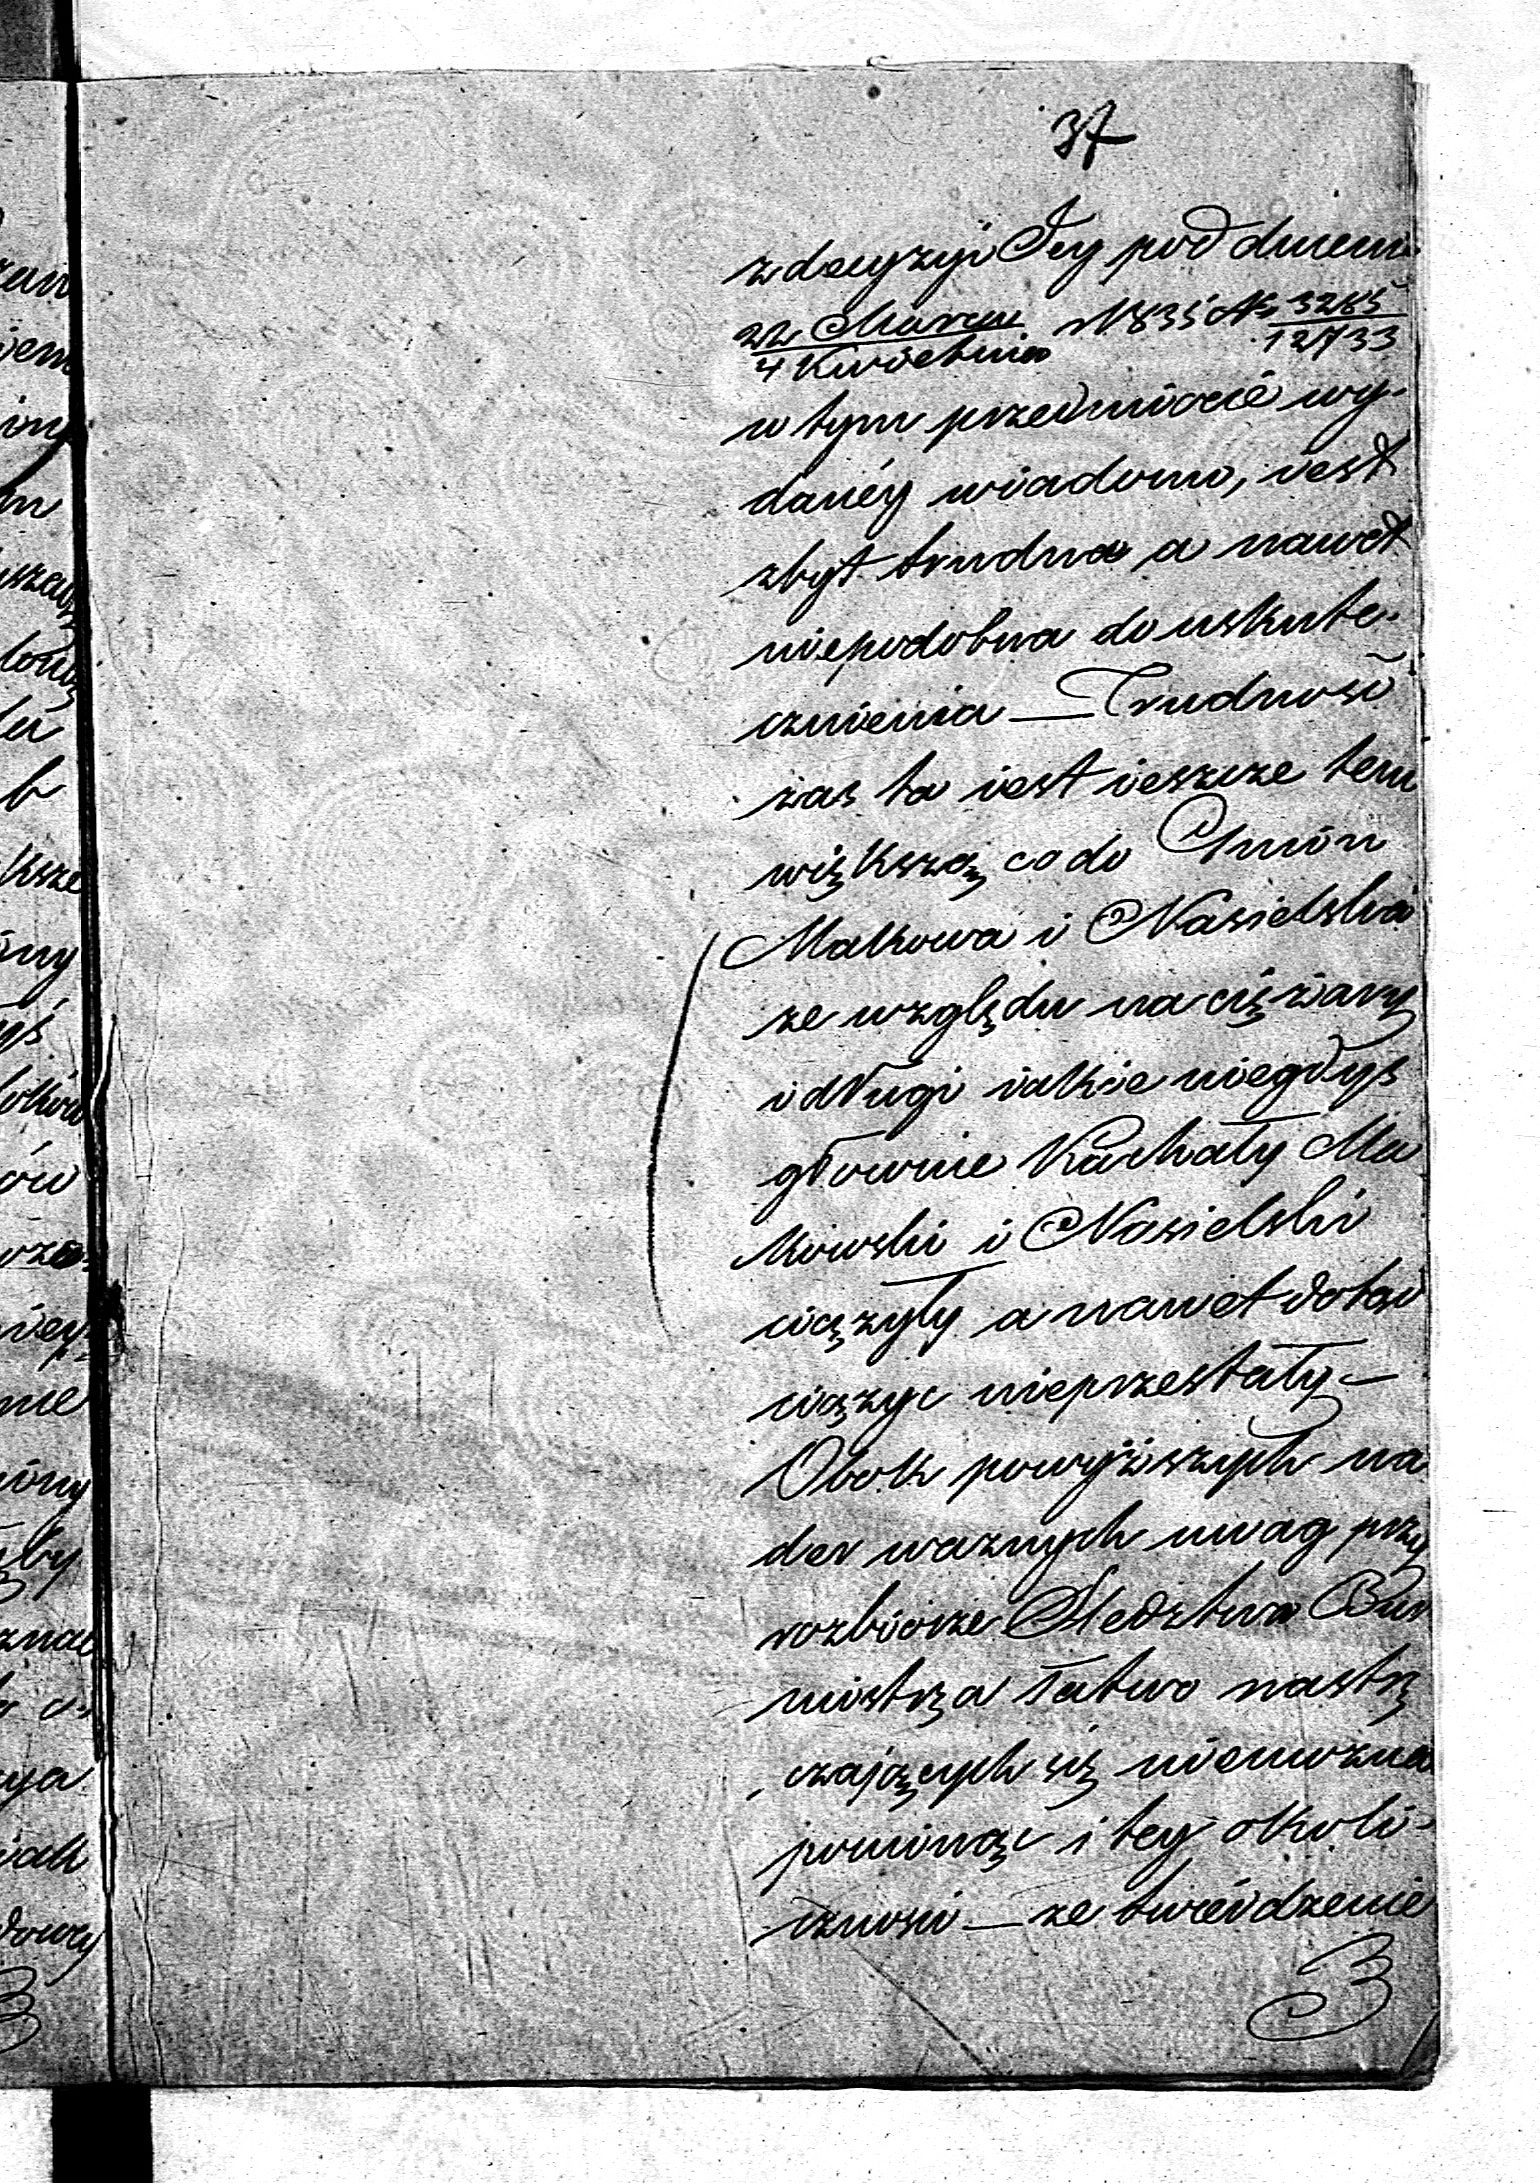 37
z decyzyi Jey pod dniem
22 Marca / 4 Kwietnia r 1835 No 3285 / 12733
w tym przedmiocie wy-
daney wiadomo, iest
zbyt trudna a nawet
niepodobna do uskute-
cznienia — Trudność
zas ta iest ieszcze tem
większą co do Gmin
Makowa i Nasielska
ze względu na ciężary
i długi iakie niegdyś
głownie Kachały Ma
kowski i Nasielski
ciążyły a nawet dotąd
ciążyc nieprzestały —
Obok powyższych na
der waznych uwag przy
rozbiorze Sledztwa Bur
mistrza łatwo nastrę
czających się niemozna
pominąc i tey okoli-
cznosci — ze twierdzenie